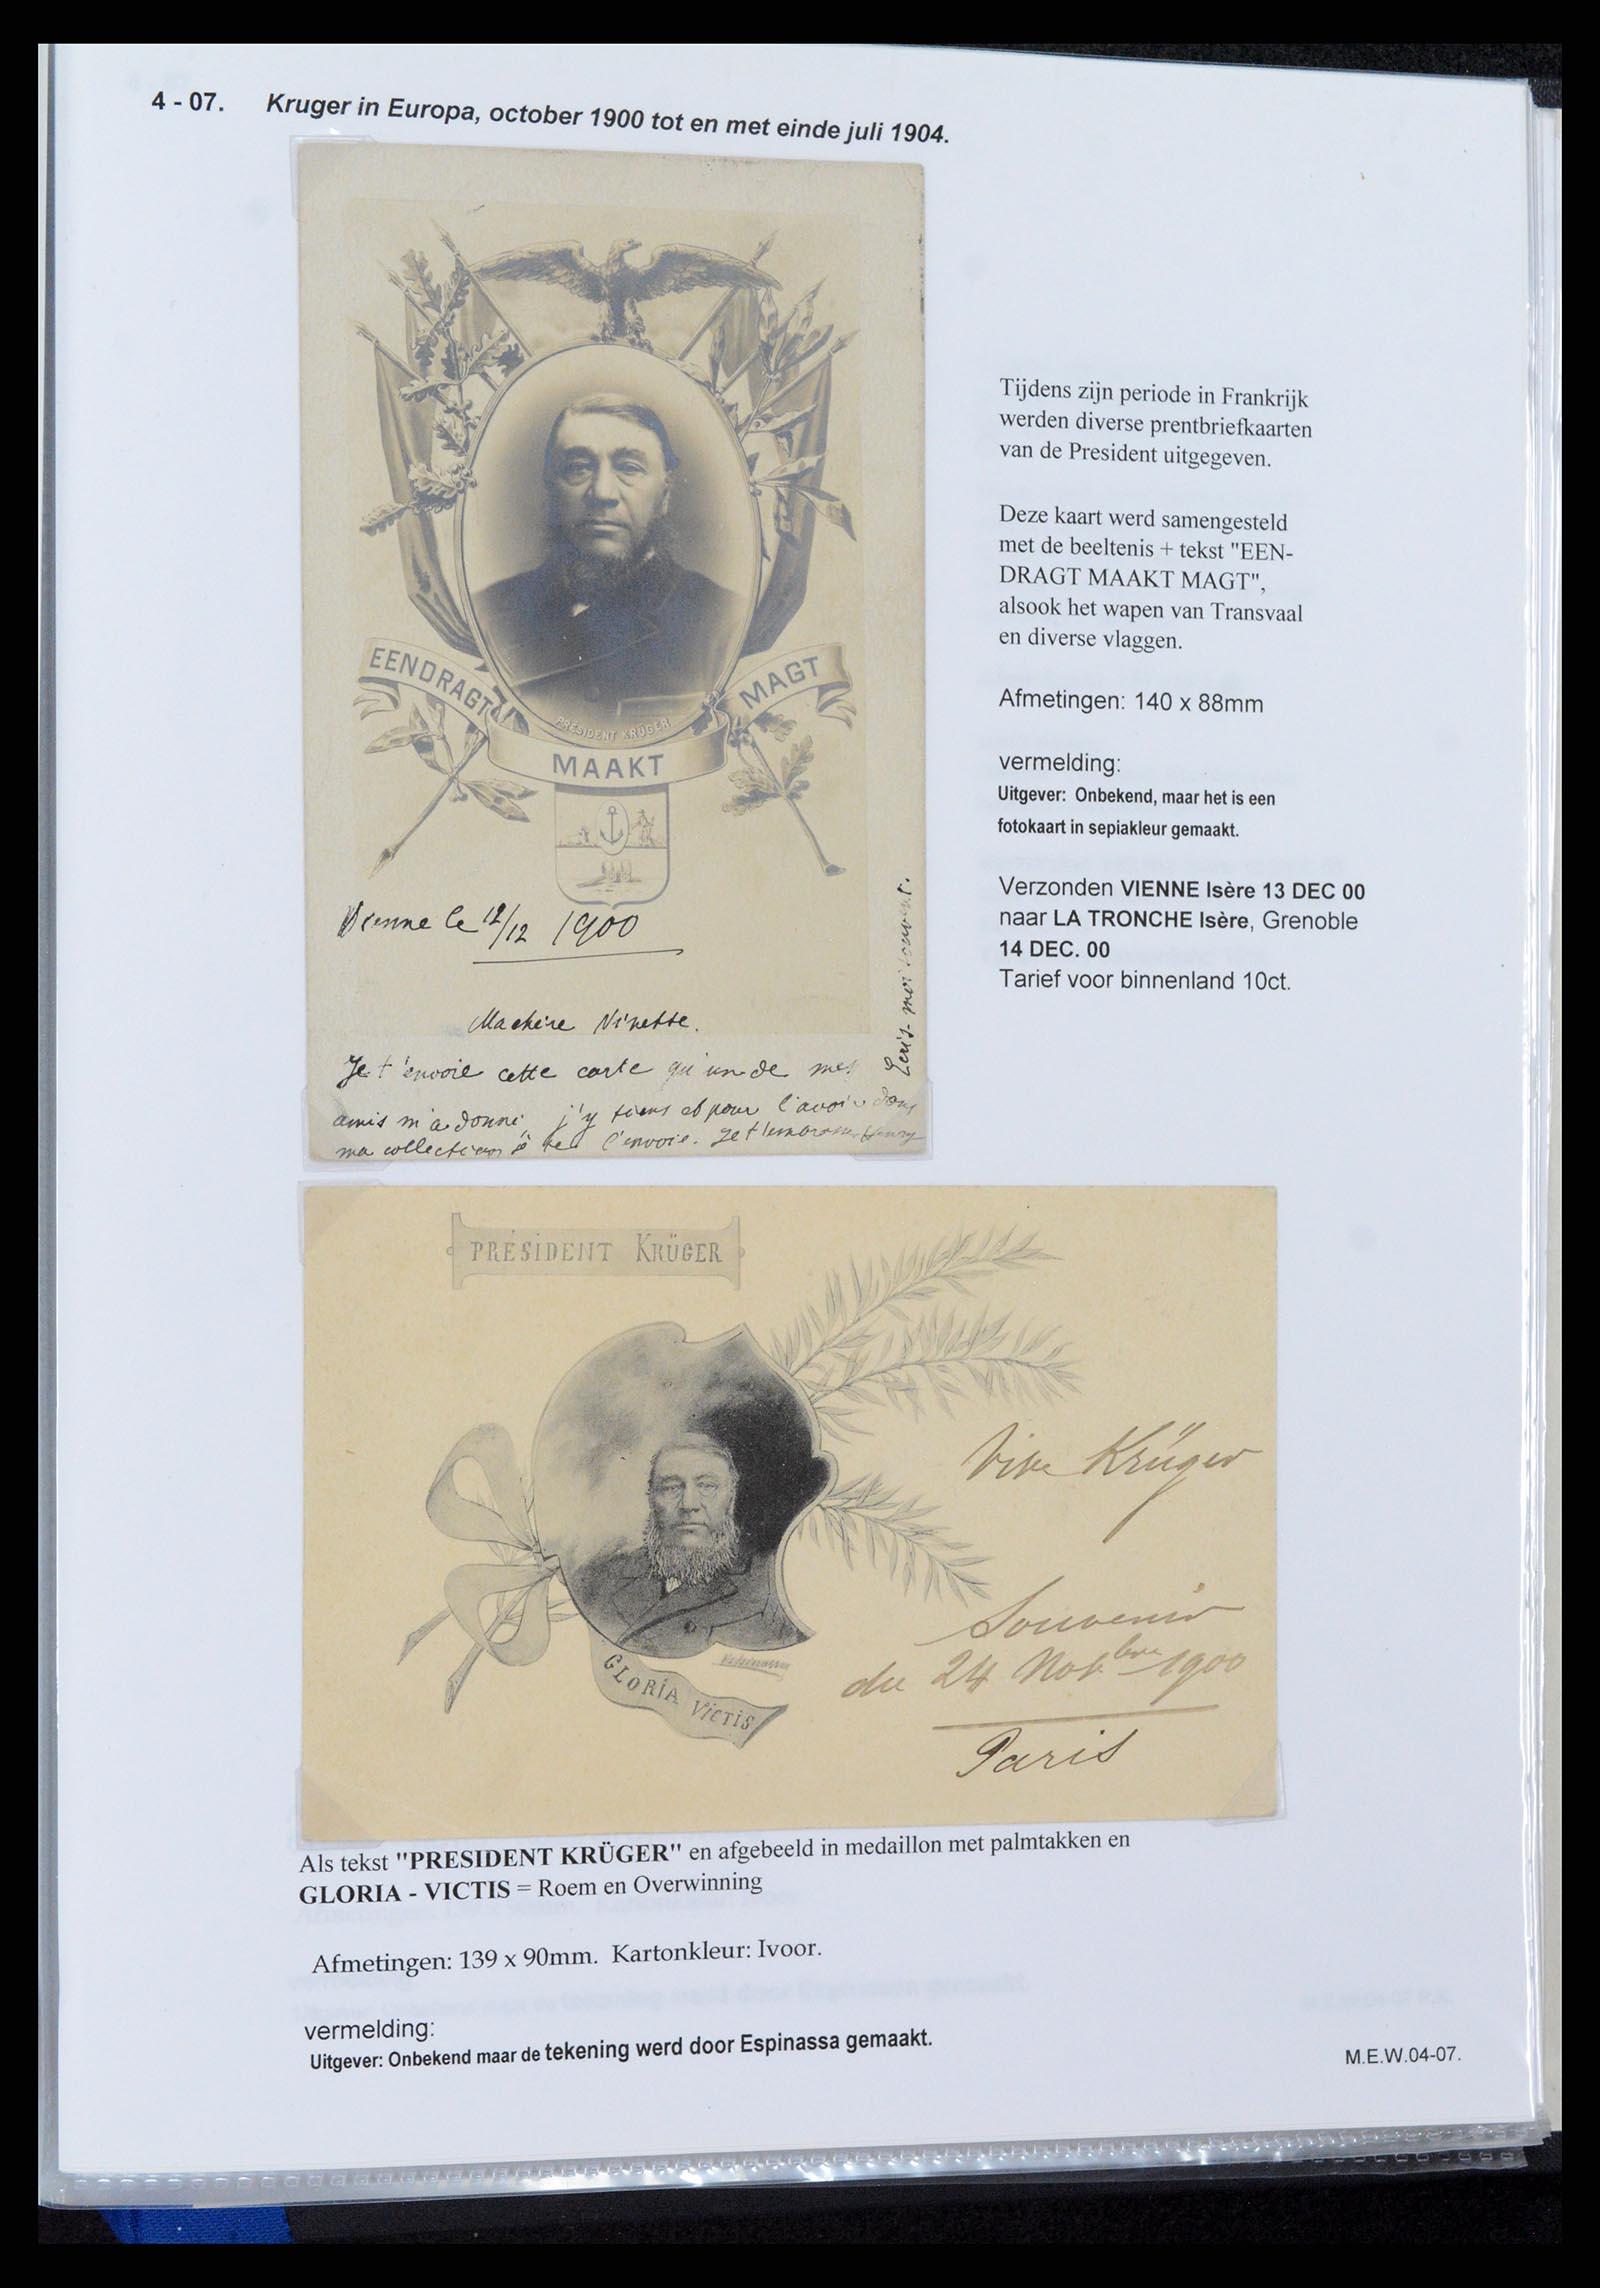 4 - 07. Kruger in Europa, october 1900 tot en met einde juli 1904.
EENDRAGT
MAAKT
MAGT
PRÉSIDENT KRÜGER
Vienne le 12/12 1900
Ma chère Ninette.
Je t'envoie cette carte qu'un de mes
amis m'a donné, j'y tiens et pour l'avoir dans
ma collection je te l'envoie. Je t'embrasse Henry
Ecris moi souvent.
Tijdens zijn periode in Frankrijk
werden diverse prentbriefkaarten
van de President uitgegeven.
Deze kaart werd samengesteld
met de beeltenis + tekst "EEN-
DRAGT MAAKT MAGT",
alsook het wapen van Transvaal
en diverse vlaggen.
Afmetingen: 140 x 88mm
vermelding:
Uitgever: Onbekend, maar het is een
fotokaart in sepiakleur gemaakt.
Verzonden VIENNE Isère 13 DEC 00
naar LA TRONCHE Isère, Grenoble
14 DEC. 00
Tarief voor binnenland 10ct.
PRÉSIDENT KRÜGER
GLORIA VICTIS
Vive Krüger
Souvenir
du 24 Nov.bre 1900
Paris
Als tekst "PRESIDENT KRÜGER" en afgebeeld in medaillon met palmtakken en
GLORIA - VICTIS = Roem en Overwinning
Afmetingen: 139 x 90mm. Kartonkleur: Ivoor.
vermelding:
Uitgever: Onbekend maar de tekening werd door Espinassa gemaakt.
M.E.W.04-07.